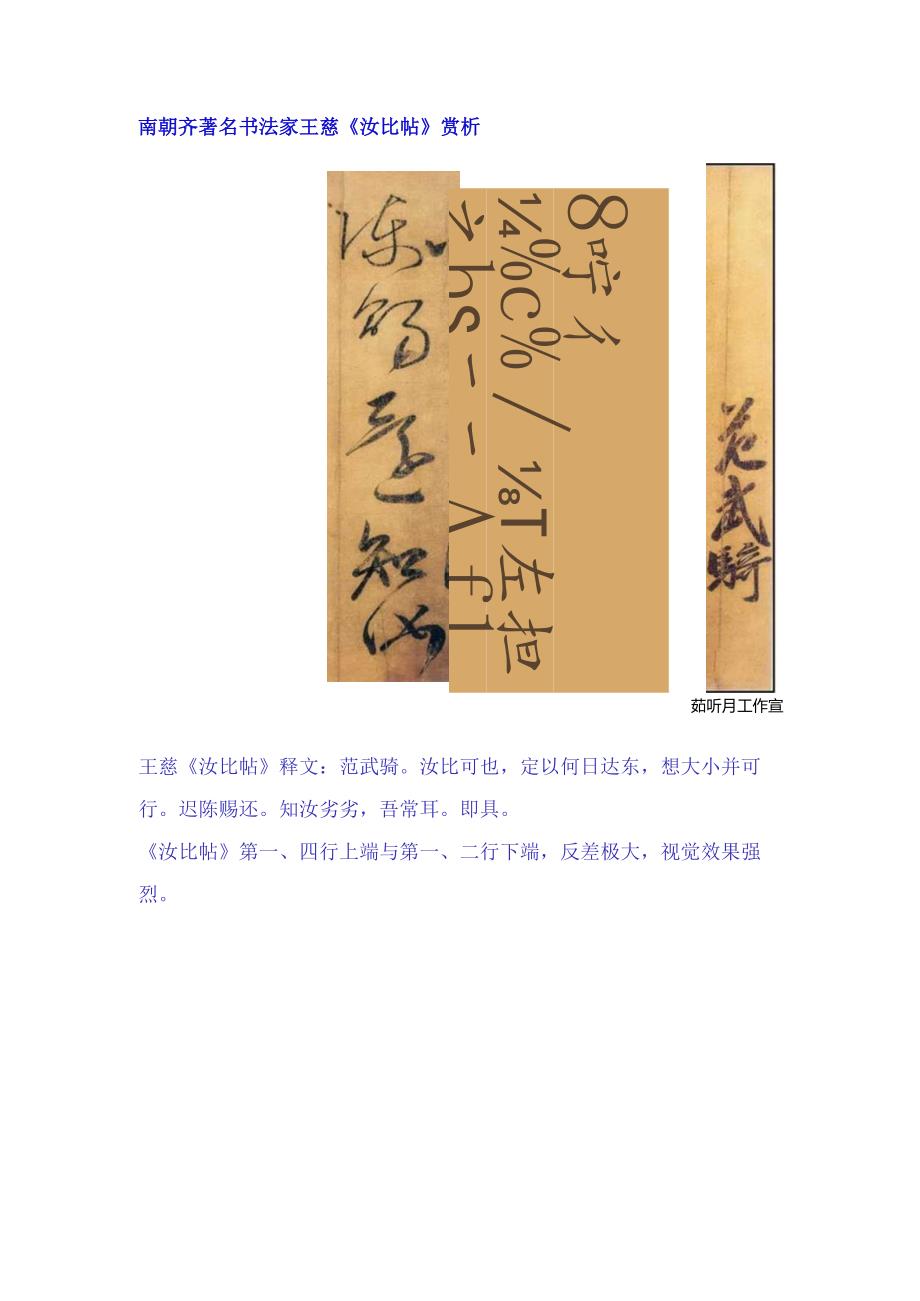 南朝齐著名书法家王慈《汝比帖》赏析
范武骑
8哼彳
¼%C%/⅛T左担
陈赐还知汝
茹听月工作宣
王慈《汝比帖》释文：范武骑。汝比可也，定以何日达东，想大小并可
行。迟陈赐还。知汝劣劣，吾常耳。即具。
《汝比帖》第一、四行上端与第一、二行下端，反差极大，视觉效果强
烈。